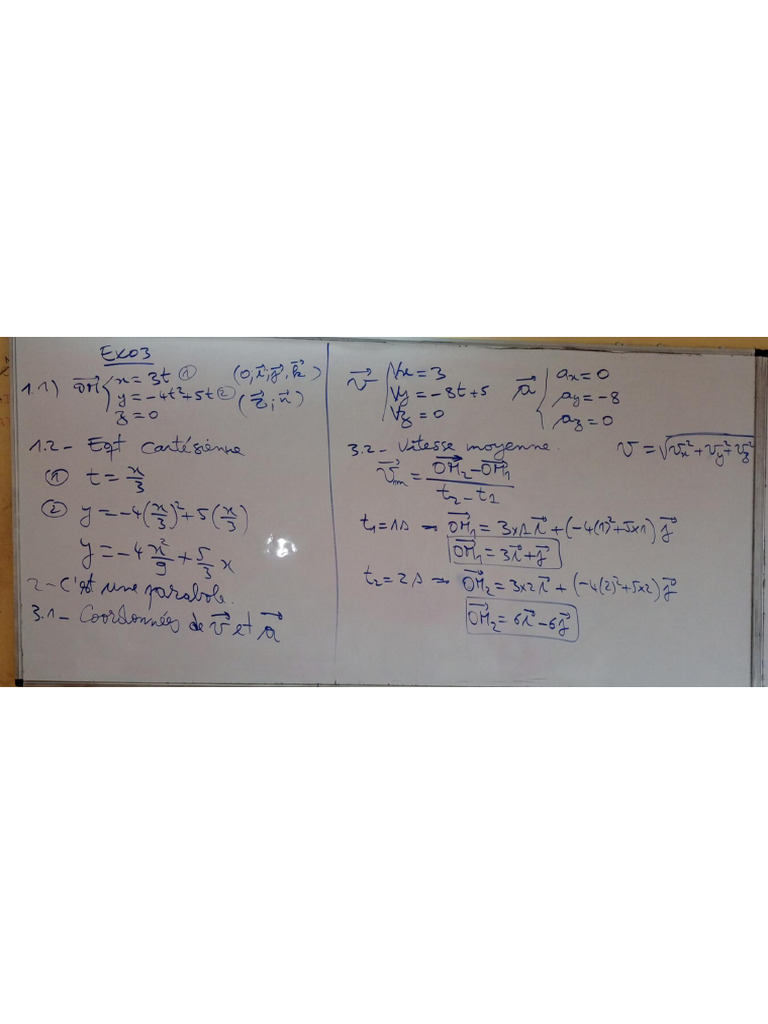 Exo3
1.1) OM⃗ { x = 3t ① (0, i⃗, j⃗, k⃗)
y = -4t² + 5t ②
z = 0
1.2 - Eqt Cartésienne
① t = x/3
② y = -4(x/3)² + 5(x/3)
y = -4 x²/9 + 5/3 x
2 - C'est une parabole.
3.1 - Coordonnées de v⃗ et a⃗
v⃗ { Vx = 3
Vy = -8t + 5
Vz = 0
a⃗ { ax = 0
ay = -8
az = 0
3.2 - Vitesse moyenne. v = √(vx² + vy² + vz²)
v⃗m = (OM⃗2 - OM⃗1)/(t2 - t1)
t1 = 1s → OM⃗1 = 3×1 i⃗ + (-4(1)² + 5×1) j⃗
OM⃗1 = 3i⃗ + j⃗
t2 = 2s → OM⃗2 = 3×2 i⃗ + (-4(2)² + 5×2) j⃗
OM⃗2 = 6i⃗ - 6j⃗